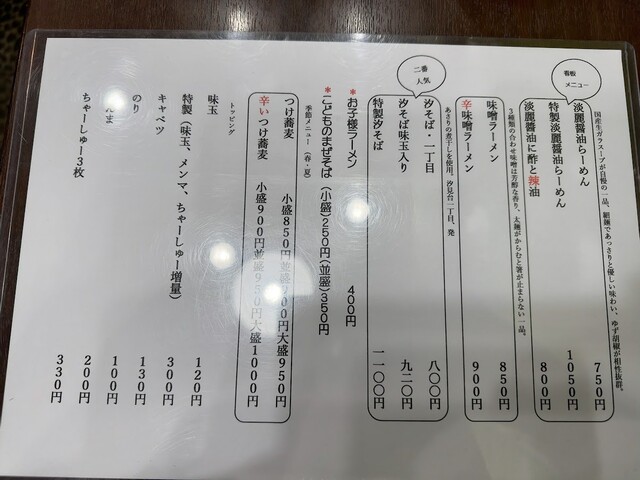 看板メニュー
国産生ガラスープが自慢の一品、細麺であっさりと優しい味わい、ゆず胡椒が相性抜群。
淡麗醤油らーめん 750円
特製淡麗醤油らーめん 1050円
淡麗醤油に酢と辣油 800円
3種類の合わせ味噌は芳醇な香り、太麺がからむと箸が止まらない一品。
味噌ラーメン 850円
辛味噌ラーメン 900円
あさりの煮干しを使用。汐見台一丁目、発
二番人気
汐そば・一丁目 八〇〇円
汐そば味玉入り 九二〇円
特製汐そば 一一〇〇円
*お子様ラーメン 400円
*こどものまぜそば(小盛)250円(並盛)350円
季節メニュー(春・夏)
つけ蕎麦 小盛850円並盛900円大盛950円
辛いつけ蕎麦 小盛900円並盛950円大盛1000円
トッピング
味玉 120円
特製(味玉、メンマ、ちゃーしゅー増量) 300円
キャベツ 130円
のり 100円
たま 200円
ちゃーしゅー3枚 330円